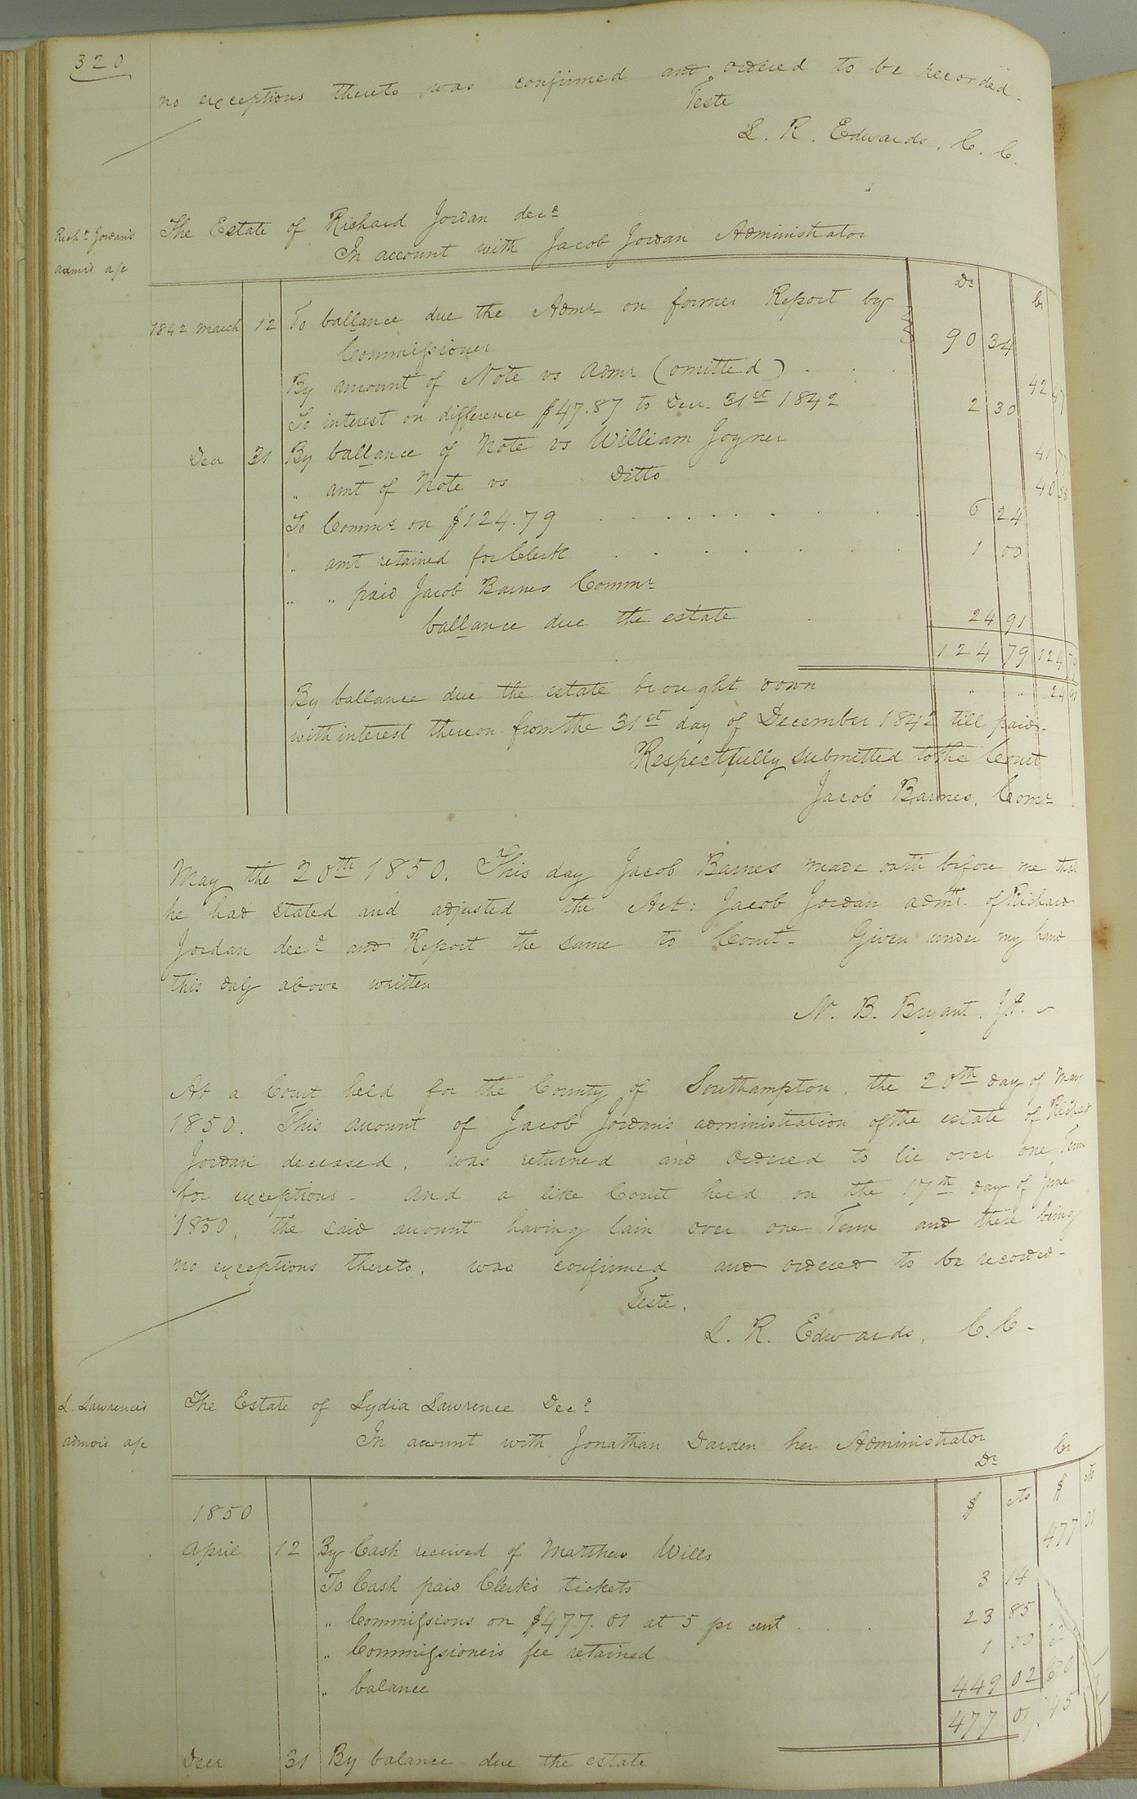 320
no exceptions thereto was confirmed and ordered to be recorded.
Teste
L. R. Edwards, C. C.
Richd Jordan's admrs a/c
The Estate of Richard Jordan decd
In account with Jacob Jordan Administrator
Dr Cr
1842 March 12 To ballance due the Admr on former Report by
Commissioner 90 34
By amount of Note vs Admr (omitted) 42 47
To interest on difference $47.87 to Decr. 31st 1842 2 30
Decr 31 By ballance of Note vs William Joyner 41
" amt of Note vs Ditto 40 58
To Comms on $124.79 6 24
" amt retained for Clerk 1 00
" " paid Jacob Barnes Commr
ballance due the estate 24 91
124 79 124 79
By ballance due the estate brought down " " 24 91
with interest thereon from the 31st day of December 1842 till paid.
Respectfully submitted to the Court
Jacob Barnes, Comr
May the 20th 1850. This day Jacob Barnes made oath before me that
he had stated and adjusted the Act: Jacob Jordan admr. of Richard
Jordan decd and Report the same to Court. Given under my hand
this day above written
N. B. Bryant, J.P.
At a Court held for the County of Southampton, the 20th day of May
1850. This account of Jacob Jordan's administration of the estate of Richard
Jordan deceased, was returned and Ordered to lie over one Term
for exceptions. And a like Court held on the 17th day of June
1850, the said account having lain over one Term and there being
no exceptions thereto, was confirmed and ordered to be recorded.
Teste,
L. R. Edwards, C. C.
L. Lawrence's admors a/c
The Estate of Lydia Lawrence Decd
In account with Jonathan Darden her Administrator
Dr Cr
1850 $ cts $ cts
April 12 By Cash received of Matthew Wills 477 01
To Cash paid Clerk's tickets 3 14
" Commissions on $477.01 at 5 pr cent 23 85
" Commissioner's fee retained 1 00
" balance 449 02
477 01
Decr 31 By balance due the estate